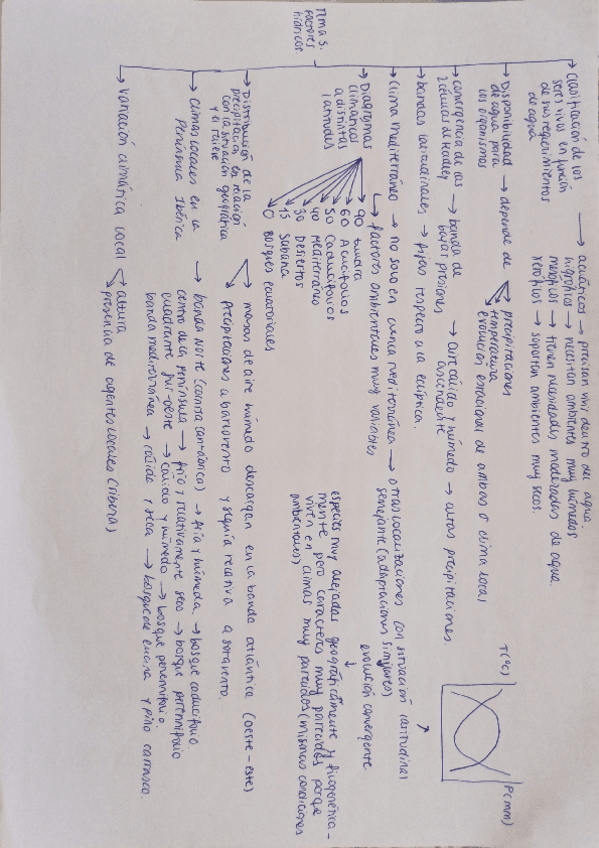 Tema 5.
Factores
hídricos.
→ Clasificación de los
seres vivos en función
de sus requerimientos
de agua
→ acuáticos → precisan vivir dentro del agua.
higrófitos → necesitan ambientes muy húmedos
mesófitos → tienen necesidades moderadas de agua.
xerófitos → soportan ambientes muy secos.
→ Disponibilidad
de agua para
los organismos
→ depende de
→ precipitaciones
→ temperatura
→ evolución estacional de ambos o clima local
→ convergencia de las
2 células de Hadley
→ banda de
bajas presiones
→ aire cálido y húmedo
ascendente
→ altas precipitaciones.
→ bandas latitudinales → fijas respecto a la eclíptica.
T(ºC)
P(mm)
→ Clima mediterráneo → no solo en cuenca mediterránea → otras localizaciones con situación latitudinal
semejante (adaptaciones similares)
→ factores ambientales muy variables
evolución convergente
especies muy alejadas geográficamente y filogénica-
mente pero caracteres muy parecidos porque
viven en climas muy parecidos (mismas condiciones
ambientales)
→ Diagramas
climáticos
a distintas
latitudes
90 tundra
60 Acucifolios
50 Caducifolios
40 Mediterráneo
30 Desiertos
15 Sabana
0 Bosques ecuatoriales
→ Distribución de la
precipitación en relación
con la situación geográfica
y el relieve
→ masas de aire húmedo descargan en la banda atlántica (oeste-este)
→ precipitaciones a barlovento y sequía relativa a sotavento.
→ climas locales en la
Península Ibérica
→ banda Norte (cornisa cantábrica) → fría y húmeda → bosque caducifolio.
centro de la península → frío y relativamente seco → bosque perennifolio
cuadrante sur-oeste → cálido y húmedo → bosque perennifolio.
banda mediterránea → cálida y seca → bosque de encina y pino carrasco.
→ Variación climática local
→ altura
→ presencia de agentes locales (ribera)